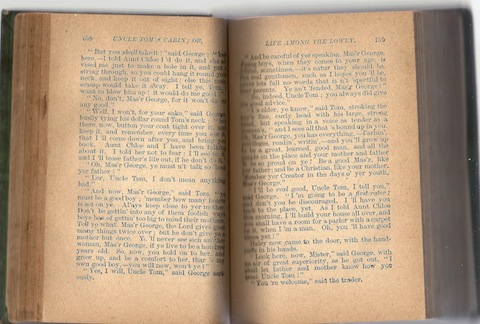 158 UNCLE TOM'S CABIN; OR,
"But you shall take it!" said George;
here,—I told Aunt Chloe I'd do it, and she
vised me just to make a hole in it, and put a
string through, so you could hang it round your
neck, and keep it out of sight; else this mean
scamp would take it away. I tell ye, Tom, I
want to blow him up! it would do me good!"
"No, don't, Mas'r George, for it won't do
any good."
"Well, I won't, for your sake," said George,
busily tying his dollar round Tom's neck;
there, now, button your coat tight over it, and
keep it, and remember, every time you see it,
that I'll come down after you, and bring you
back. Aunt Chloe and I have been talking
about it. I told her not to fear; I'll see to it,
and I'll tease father's life out, if he don't do it."
"Oh, Mas'r George, ye mustn't talk so 'bout
yer father!"
"Lor, Uncle Tom, I don't mean anything
bad."
"And now, Mas'r George," said Tom, "ye
must be a good boy; 'member how many hearts
is sot on ye. Always keep close to yer mother.
Don't be gettin' into any of them foolish ways
boys has of gettin' too big to mind their mothers.
Tell ye what, Mas'r George, the Lord gives good
many things twice over; but he don't give ye a
mother but once. Ye'll never see sich another
woman, Mas'r George, if ye live to be a hundred
years old. So, now, you hold on to her, and
grow up, and be a comfort to her, thar's my
own good boy,—you will now, won't ye?"
"Yes, I will, Uncle Tom," said George
ously.
LIFE AMONG THE LOWLY. 159
"And be careful of yer speaking, Mas'r George.
Young boys, when they comes to your age, is
wilful, sometimes,—it's natur they should be.
real gentlemen, such as I hopes you'll be,
never lets fall no words that isn't 'spectful to
parents. Ye an't 'fended, Mas'r George?"
indeed, Uncle Tom; you always did give
good advice."
"I's older, ye know," said Tom, stroking the
boy's fine, curly head with his large, strong
but speaking in a voice as tender as a
woman's, "and I sees all that's bound up in you.
Mas'r George, you has everything,—l'arnin',
privileges, readin', writin',—and you'll grow up
be a great, learned, good man, and all the
people on the place and your mother and father
be so proud on ye! Be a good Mas'r, like
yer father; and be a Christian, like yer mother.
'Member yer Creator in the days o' yer youth,
Mas'r George."
"I'll be real good, Uncle Tom, I tell you,"
said George. "I'm going to be a first-rater;
and don't you be discouraged. I'll have you
back to the place, yet. As I told Aunt Chloe
this morning, I'll build your house all over, and
you shall have a room for a parlor with a carpet
on it, when I'm a man. Oh, you'll have good
times yet!"
Haley now came to the door, with the hand-
cuffs in his hands.
"Look here, now, Mister," said George, with
an air of great superiority, as he got out, "I
shall let father and mother know how you
treat Uncle Tom!"
"You're welcome," said the trader.